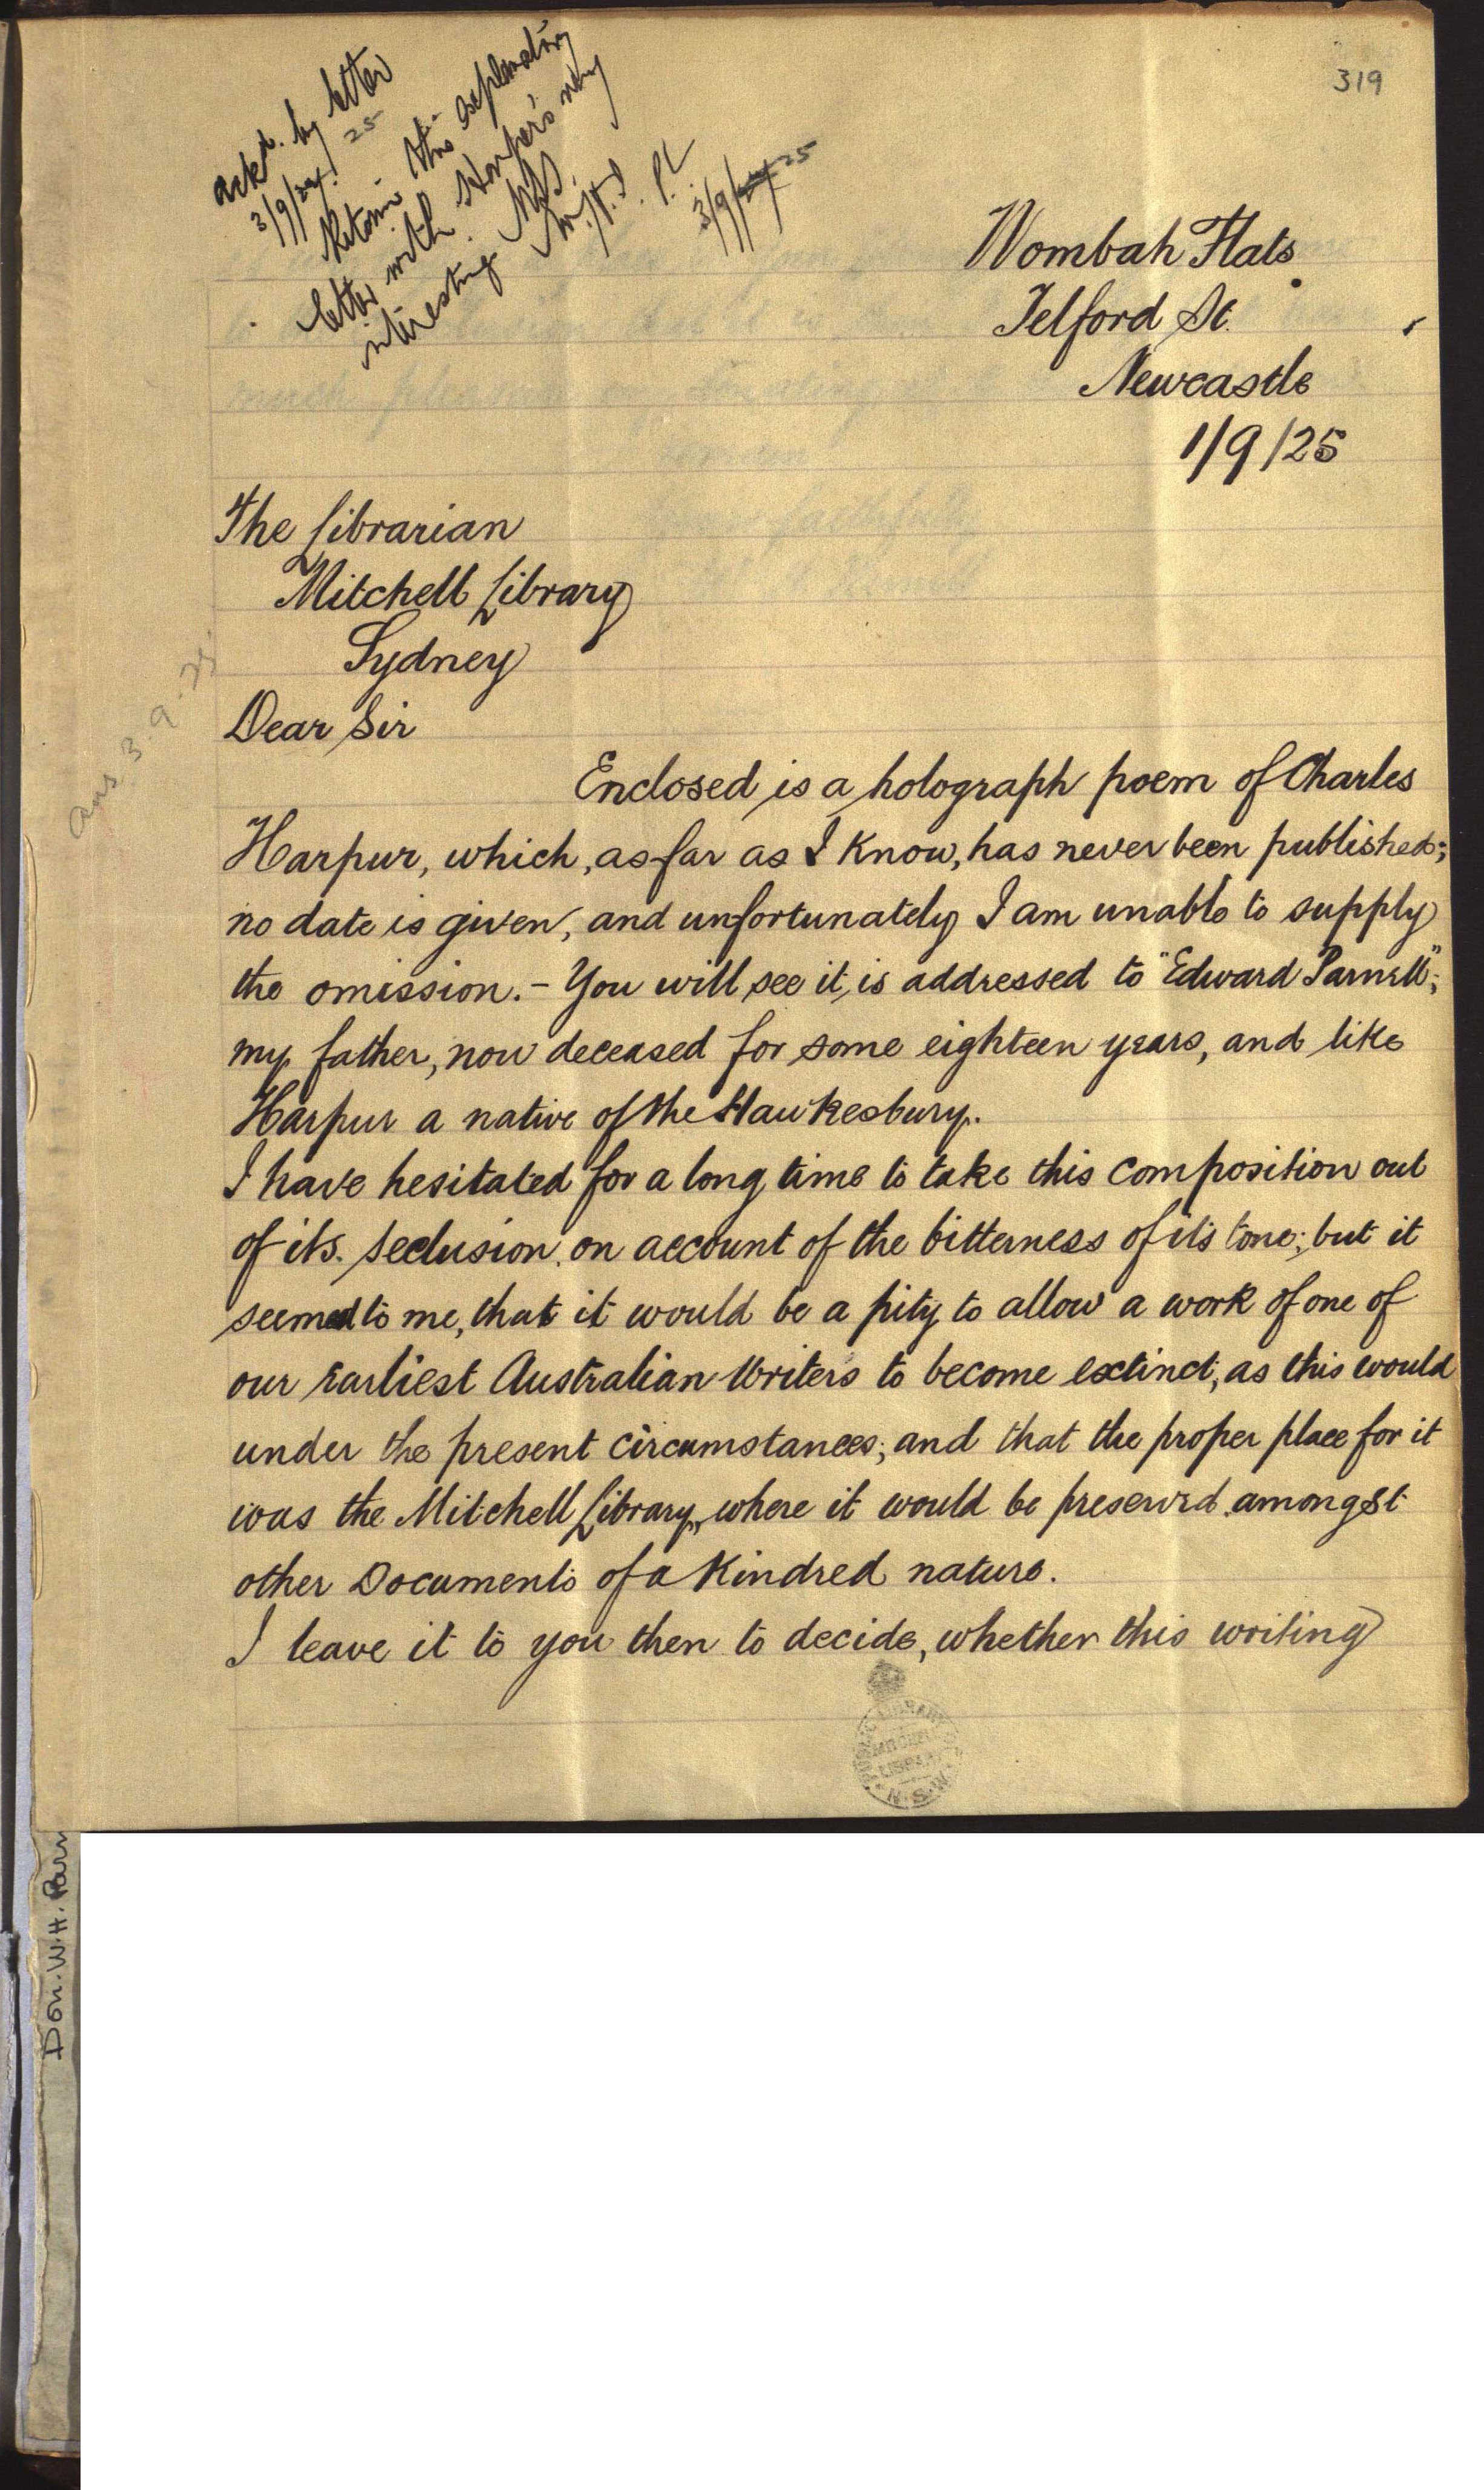 319
ackd. by letter
3/9/24 25
Retain this explanatory
letter with Harpur's
interesting MSS.
P.L.
3/9/24 25
Wombah Flats.
Telford St.
Newcastle
1/9/25
The Librarian
Mitchell Library
Sydney
Dear Sir
ans 3.9.25
Enclosed is a holograph poem of Charles
Harpur, which, as far as I know, has never been published;
no date is given, and unfortunately I am unable to supply
the omission. - You will see it is addressed to "Edward Parnell";
my father, now deceased for some eighteen years, and like
Harpur a native of the Hawkesbury.
I have hesitated for a long time to take this composition out
of its seclusion on account of the bitterness of its tone; but it
seemed to me, that it would be a pity to allow a work of one of
our earliest Australian Writers to become extinct, as this would
under the present circumstances; and that the proper place for it
was the Mitchell Library, where it would be preserved amongst
other Documents of a Kindred nature.
I leave it to you then to decide, whether this writing
PUBLIC LIBRARY
MITCHELL
LIBRARY
N.S.W.
Don. W.H. Parn